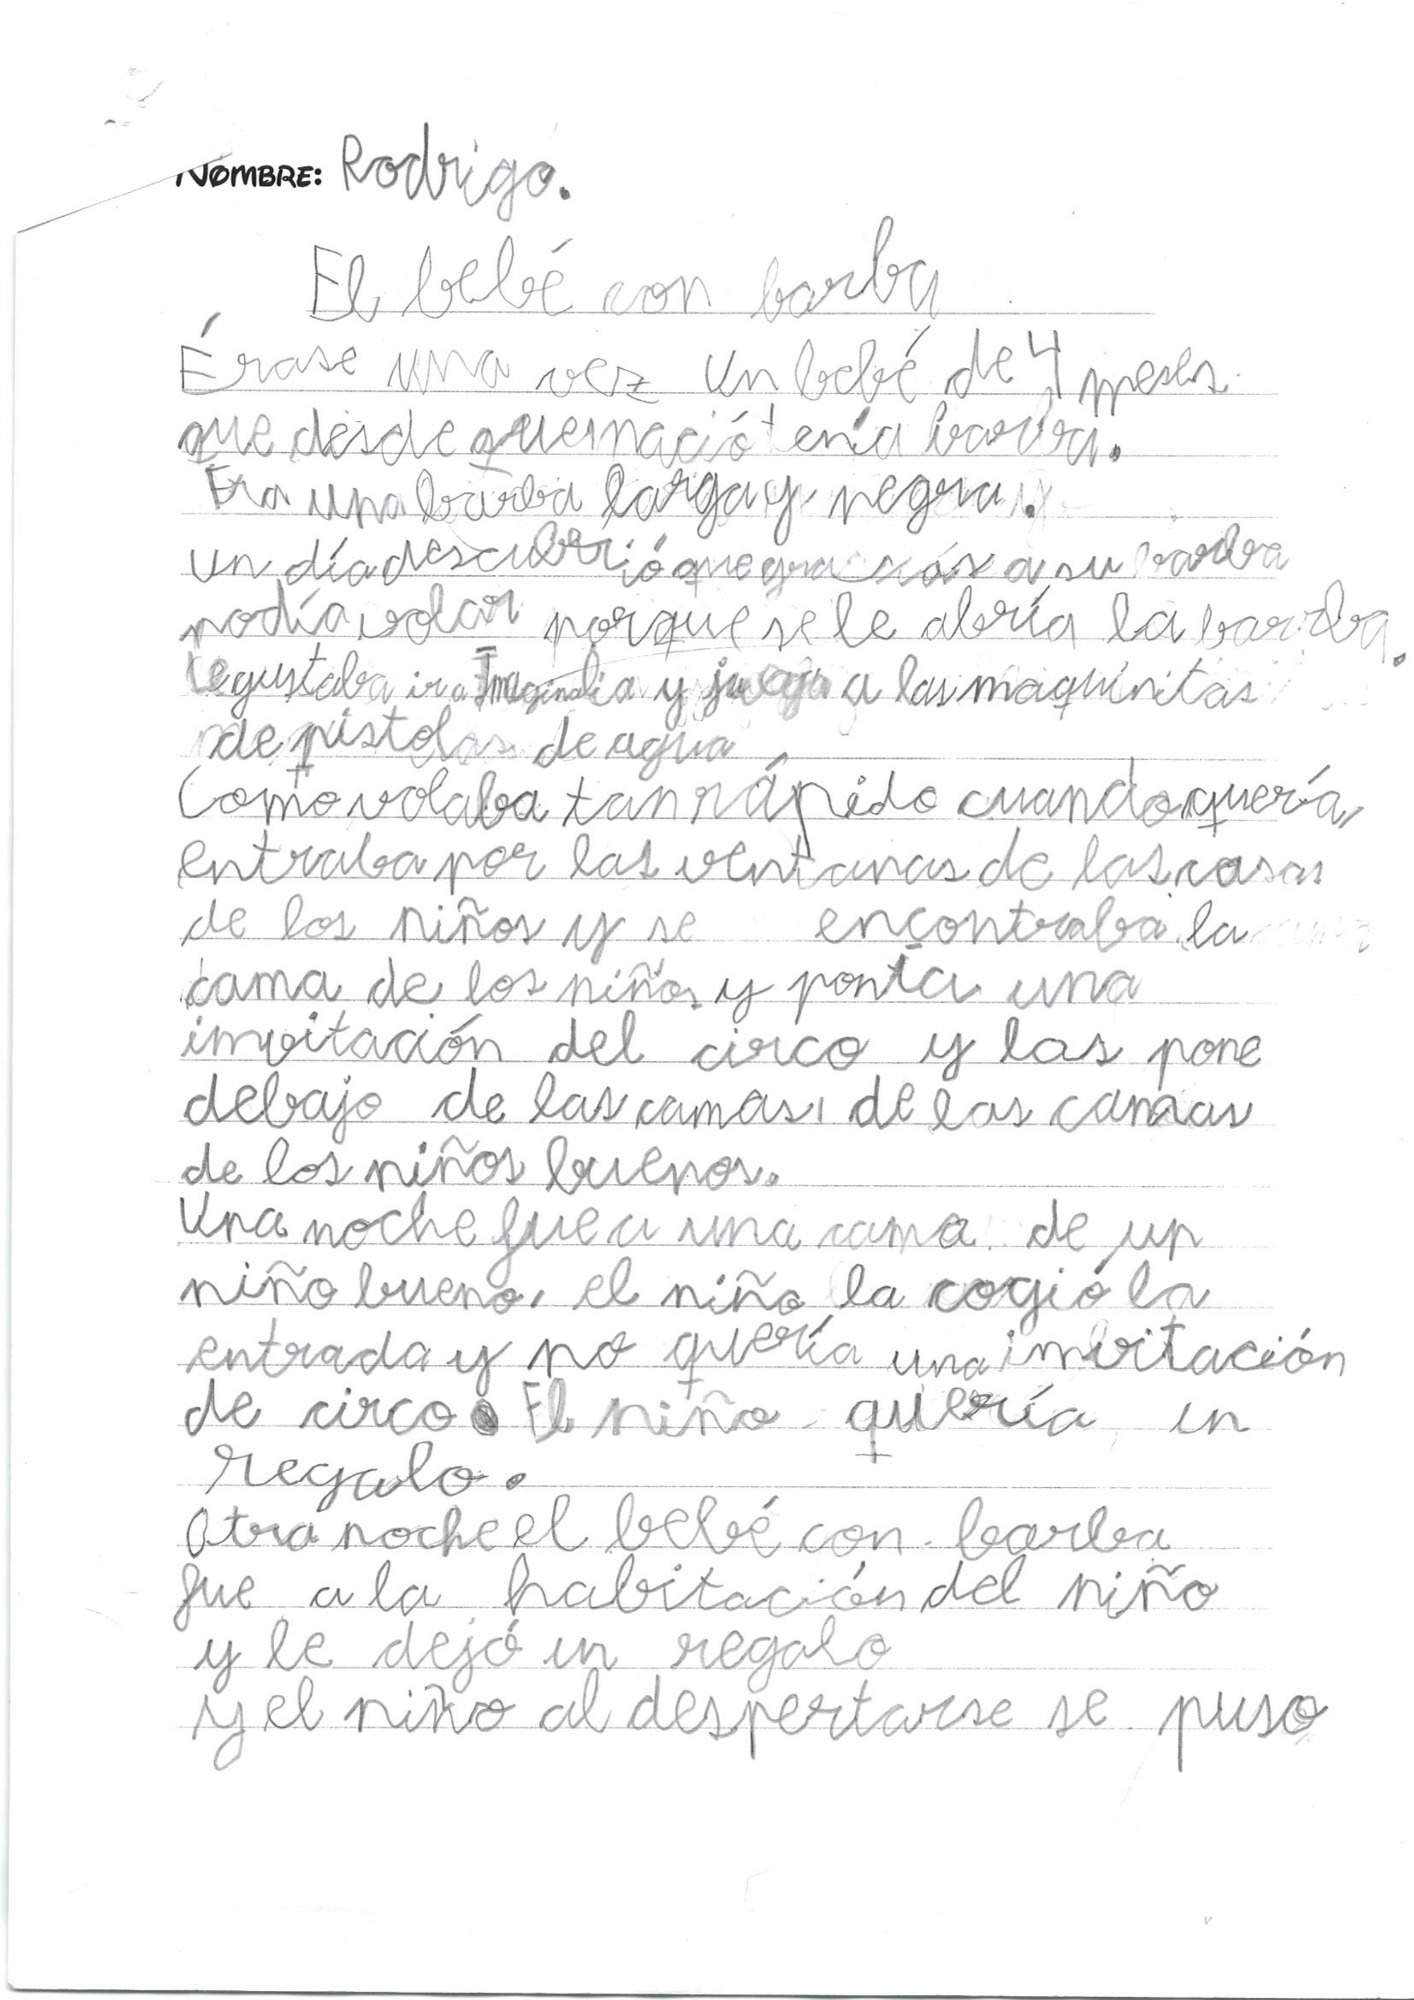 NOMBRE: Rodrigo.
El bebé con barba
Érase una vez un bebé de 4 meses
que desde que nació tenía barba.
Era una barba larga y negra.
un día descubrió que gracias a su barba
podía volar porque se le abría la barba.
Le gustaba ir a Imaginalia y jugar a las maquinitas
de pistolas de agua
Como volaba tan rápido cuando quería,
entraba por las ventanas de las casas
de los niños y se encontraba la
cama de los niños y ponía una
imvitación del circo y las pone
debajo de las camas, de las camas
de los niños buenos.
Una noche fue a una cama de un
niño bueno, el niño la cogió la
entrada y no quería una imvitación
de circo. El niño quería un
regalo.
Otra noche el bebé con barba
fue a la habitación del niño
y le dejó un regalo
y el niño al despertarse se puso